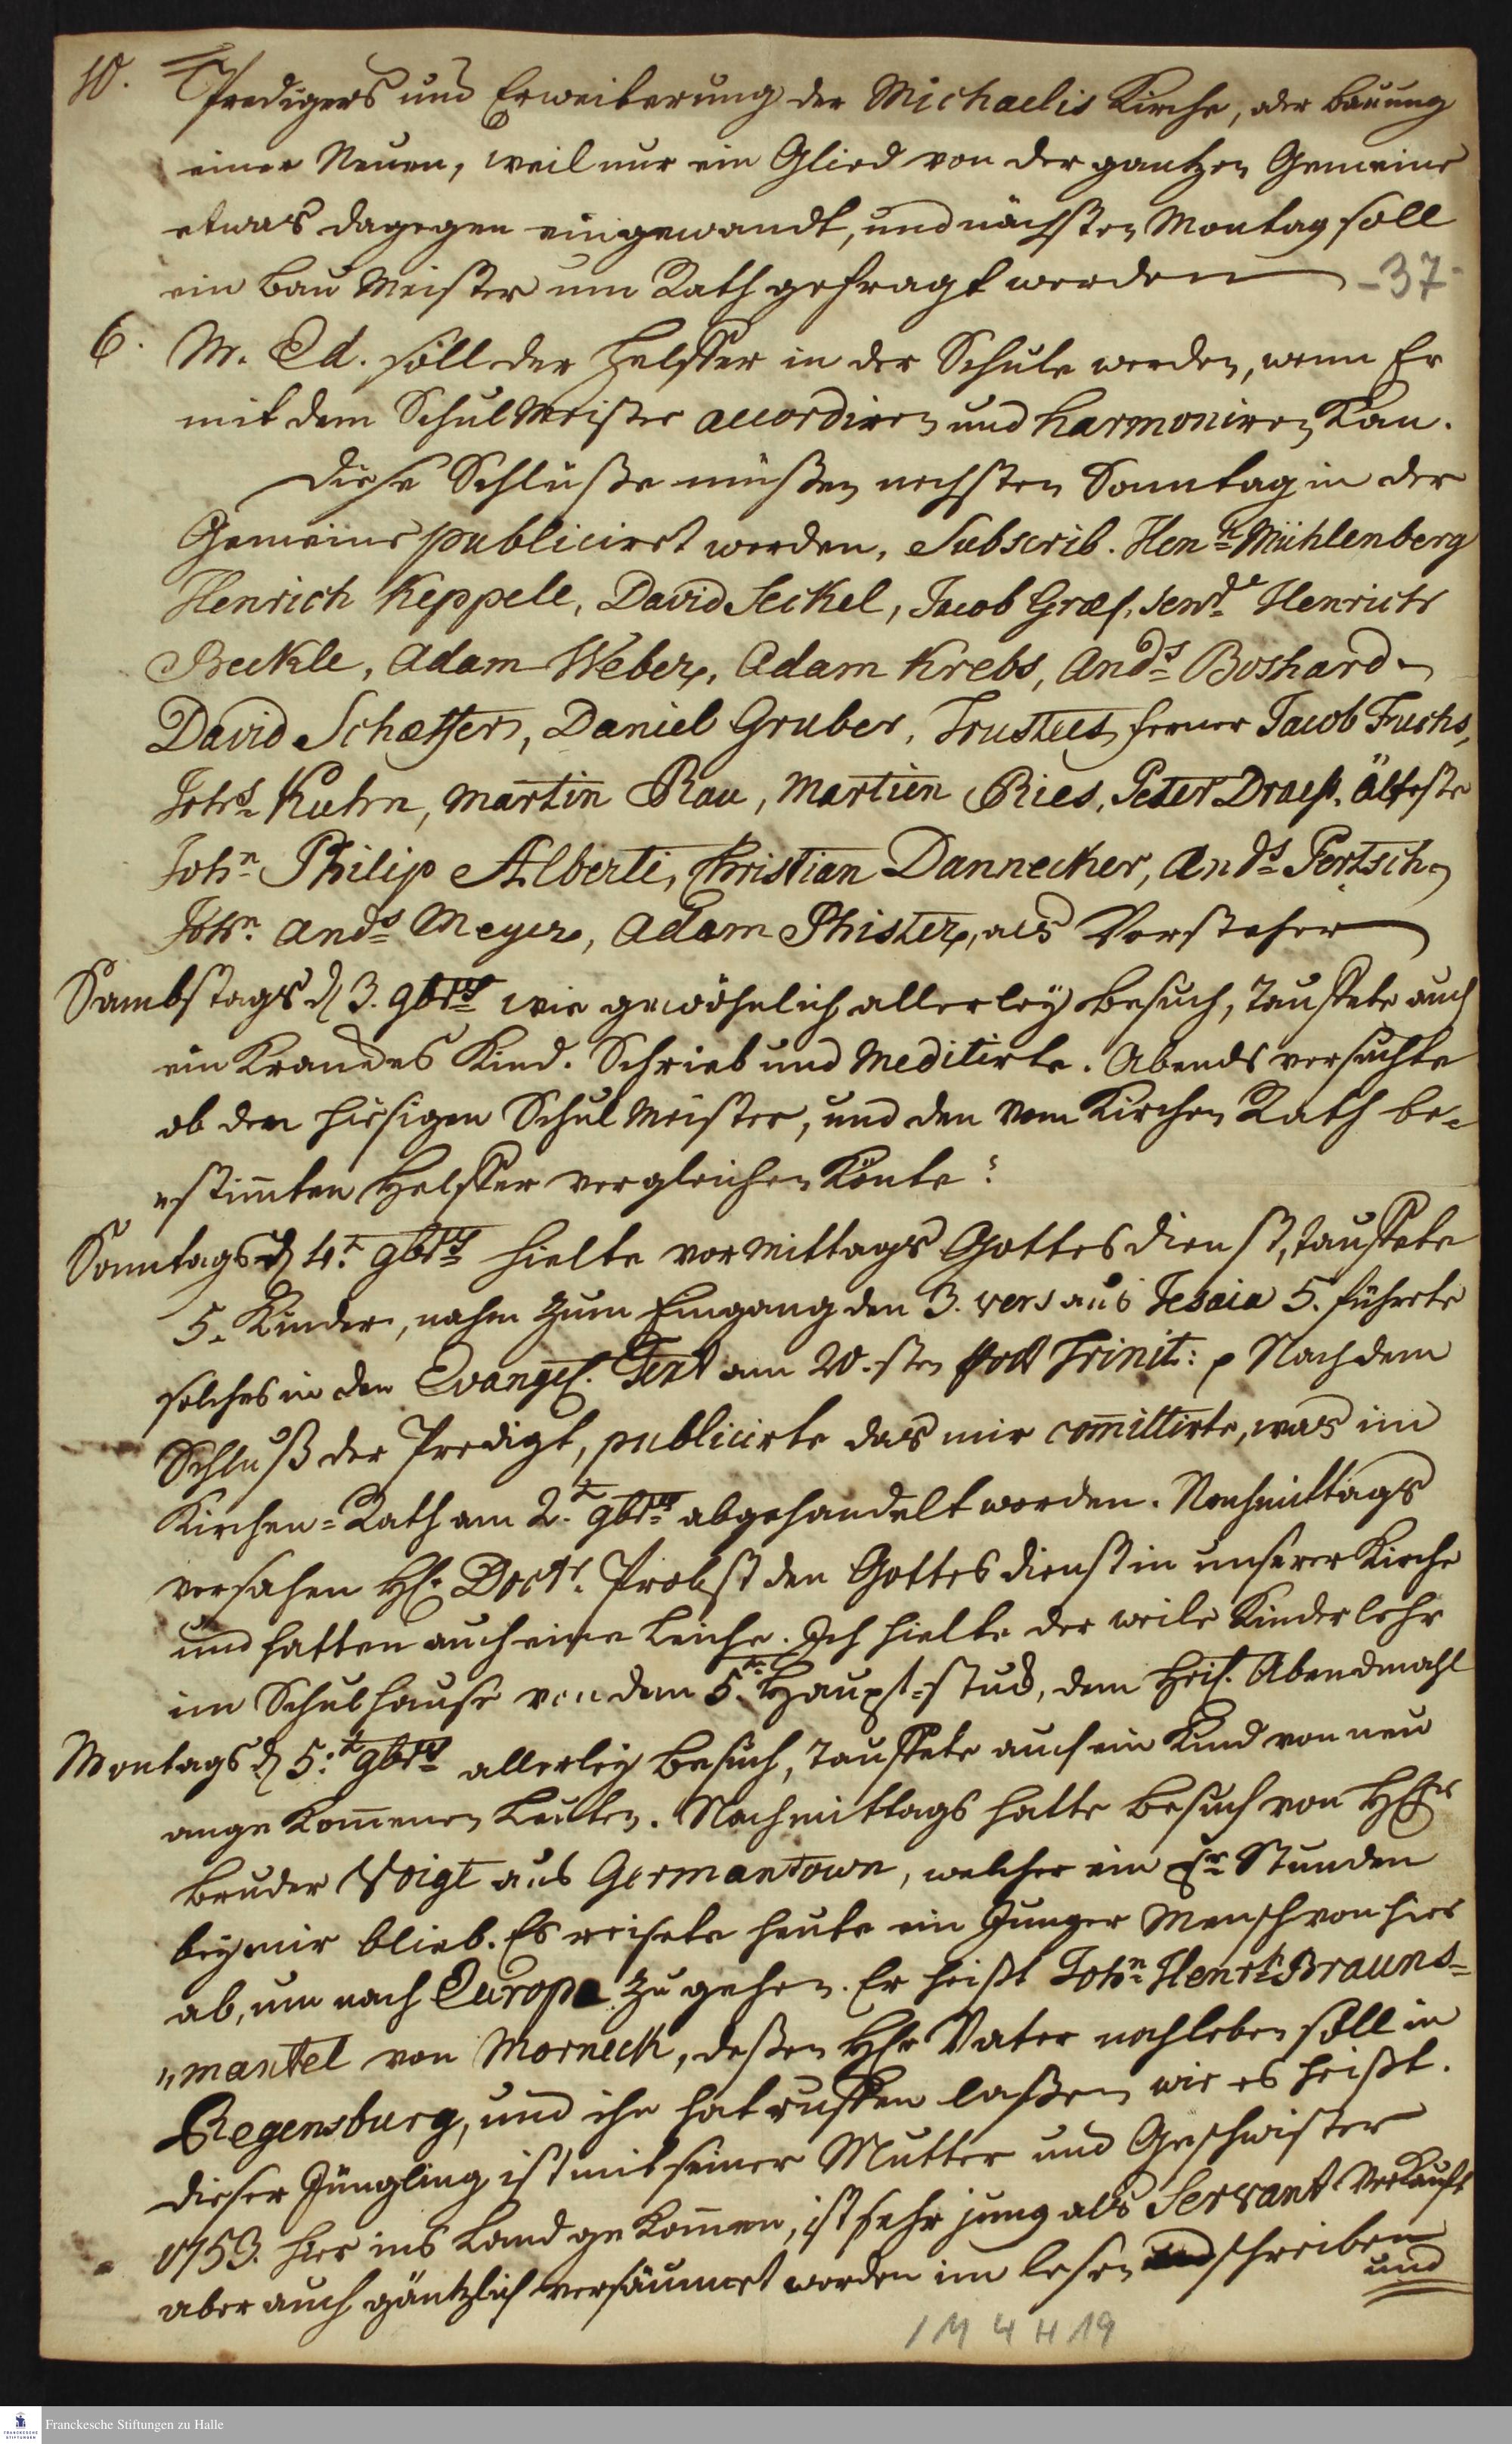 10.
Predigers und Erweiterung der Michaelis Kirche, oder bauung
einer Neuen, weil nur ein Glied von der gantzen Gemeine
etwas dagegen eingewandt, und nächsten Montag soll
ein Bau Meister um Rath gefragt werden
-37-
6. M. Ed. soll der Helffer in der Schule werden, wenn Er
mit dem Schul Meister accordiren und harmoniren kan.
Diese Schlüße müßen nechsten Sonntag in der
Gemeine publiciret werden. Subscrib. Henr. Mühlenberg
Henrich Keppele, David Seckel, Jacob Graef, Senr. Henrich
Beckle, Adam Weber, Adam Krebs, Ands Boshard
David Schaeffer, Daniel Gruber, Trustees, ferner Jacob Fuchs,
Johs Kuhn, Martin Rau, Martin Ries, Peter Draess, Älteste
John Philip Alberti, Christian Dannecker, Ands Pertsch
John Ands Meyer, Adam Phister, als Vorsteher
Sambstags d 3. 9br wie gewöhnlich allerley besuch, tauffete auch
ein Krankes Kind. Schrieb und Meditirte. Abends versuchte
ob den hiesigen Schul Meister, und den vom Kirchen Rath be-
stimten Helffer vergleichen könte?
Sonntags d 4t 9br hielte vor Mittags Gottes dienst, tauffete
5. Kinder, nahm zum Eingang den 3. vers aus Jesaia 5. führete
solches in den Evangel. Text am 20.sten post Trinit: Nach dem
Schluß der Predigt, publicirte das mir comittirte, was im
Kirchen-Rath am 2t 9br abgehandelt worden. Nachmittags
versahen H. Doctr. Probst den Gottes dienst in unserer Kirche
und hatten auch eine Leiche. Ich hielte der weile Kinder lehr
im Schulhause von dem 5ten Haupt-stück, dem Heil. Abendmahl
Montags d 5t 9br allerley besuch, tauffete auch ein Kind von neu
ange komenen Leuten. Nachmittags hatte besuch von
Bruder Voigt aus Germantown, welcher ein Stunden
bey mir blieb. Es reisete heute ein Junger Mensch von hier
ab, um nach Europa zu gehen. Er heißt John Henr. Brauns-
mantel von Morneck, deßen Hr Vater noch leben soll in
Regensburg, und ihn hat ruffen laßen, wie es heißt.
Dieser Jüngling ist mit seiner Mutter und Geschwister
1753. hier ins Land gekomen, ist sehr jung als Servant verkauft
aber auch gäntzlich versäumet worden im lesen schreiben
und
1 M 4 H 19
Franckesche Stiftungen zu Halle